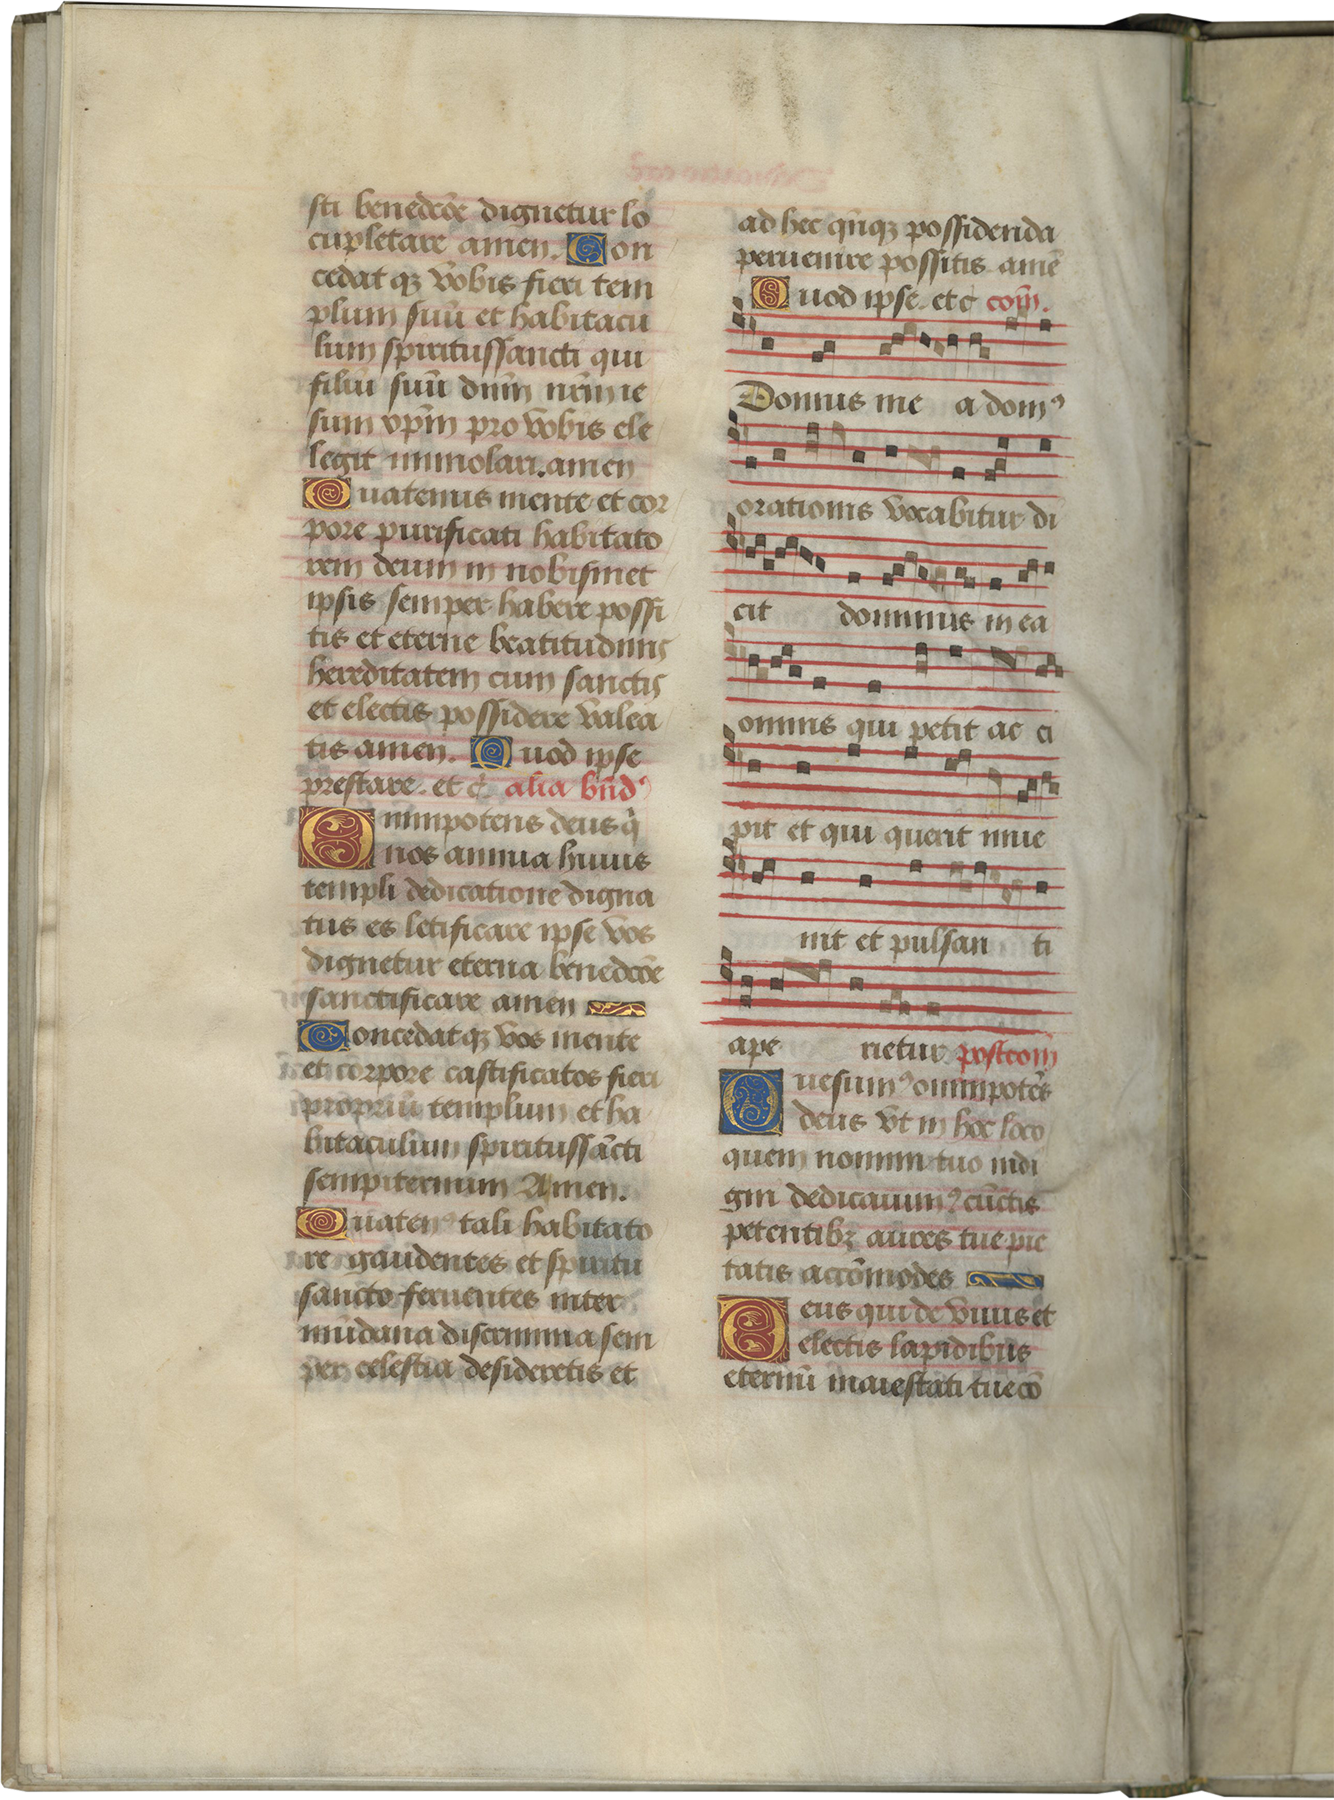 sti benedcōe dignetur lo
cupletare amen. Con
cedat qꝫ vobis fieri tem
plum suū et habitacu
lum spiritussancti qui
filiū suū dnm̄ nrm̄ ie
sum xpm̄ pro vobis ele
legit immolari. amen
Quatenus mente et cor
pore purificati habitato
rem deum in nobismet
ipsis semper habere possi
tis et eterne beatitudinis
hereditatem cum sanctis
et electis possidere valea
tis amen. Quod ipse
prestare. et c̄ alia bn̄d'
Omnipotens deus q̄
nos annua huius
templi dedicatione digna
tus es letificare ipse vos
dignetur eterna benedcōe
sanctificare amen
Concedatqꝫ vos mente
et corpore castificatos fieri
propriū templum et ha
bitaculum spiritussācti
sempiternum Amen.
Quatenꝰ tali habitato
re gaudentes et spiritu
sancto feruentes inter
mūdana discrimina sem
per celestia desideretis et
ad hec qn̄qꝫ possidenda
peruenire possitis amē
Quod ipse. et c̄ com̄.
Domus me a domꝰ
orationis vocabitur di
cit dominus in ea
omnis qui petit ac ci
pit et qui querit inue
nit et pulsan ti
ape rietur postcom̄
Quesumꝰ omnipotēs
deus vt in hoc loco
quem nomini tuo indi
gni dedicauimꝰ cūctis
petentibꝫ aures tue pie
tatis accōmodes
Deus qui de viuis et
electis lapidibus
eternū maiestati tue cō